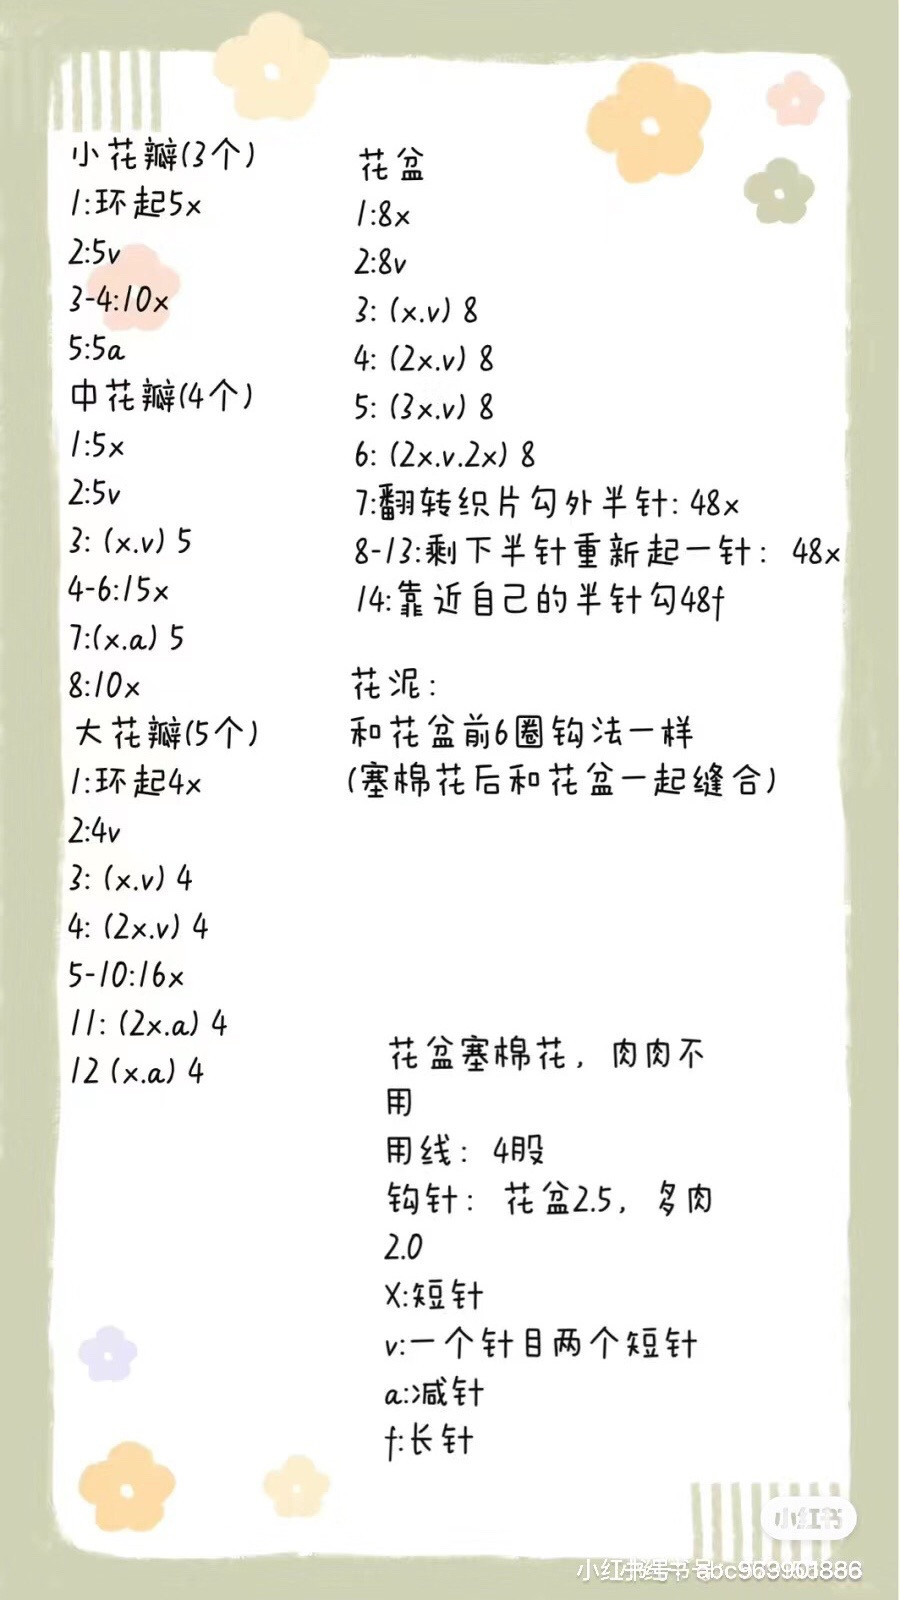 小花瓣(3个)
1:环起5x
2:5v
3-4:10x
5:5a
中花瓣(4个)
1:5x
2:5v
3: (x.v) 5
4-6:15x
7:(x.a) 5
8:10x
大花瓣(5个)
1:环起4x
2:4v
3: (x.v) 4
4: (2x.v) 4
5-10:16x
11: (2x.a) 4
12 (x.a) 4
花盆
1:8x
2:8v
3: (x.v) 8
4: (2x.v) 8
5: (3x.v) 8
6: (2x.v.2x) 8
7:翻转织片勾外半针: 48x
8-13:剩下半针重新起一针: 48x
14:靠近自己的半针勾48f
花泥:
和花盆前6圈钩法一样
(塞棉花后和花盆一起缝合)
花盆塞棉花, 肉肉不
用
用线: 4股
钩针: 花盆2.5, 多肉
2.0
X:短针
v:一个针目两个短针
a:减针
f:长针
小红书